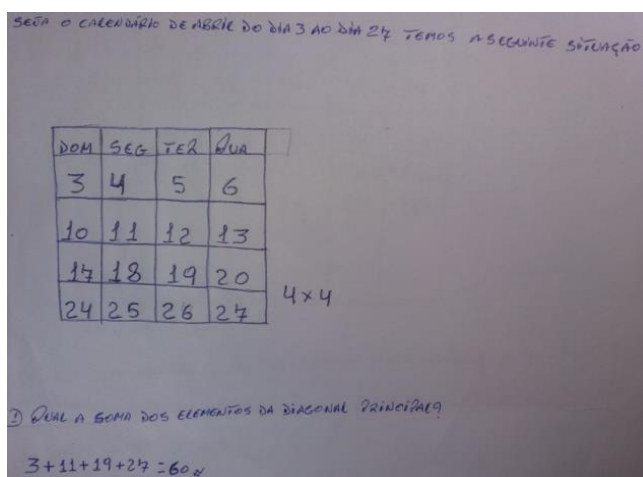 SEJA O CALENDÁRIO DE ABRIL DO DIA 3 AO DIA 27 TEMOS A SEGUINTE SITUAÇÃO
DOM SEG TER QUA
3 4 5 6
10 11 12 13
17 18 19 20
24 25 26 27
4x4
1) QUAL A SOMA DOS ELEMENTOS DA DIAGONAL PRINCIPAL?
3+11+19+27=60//